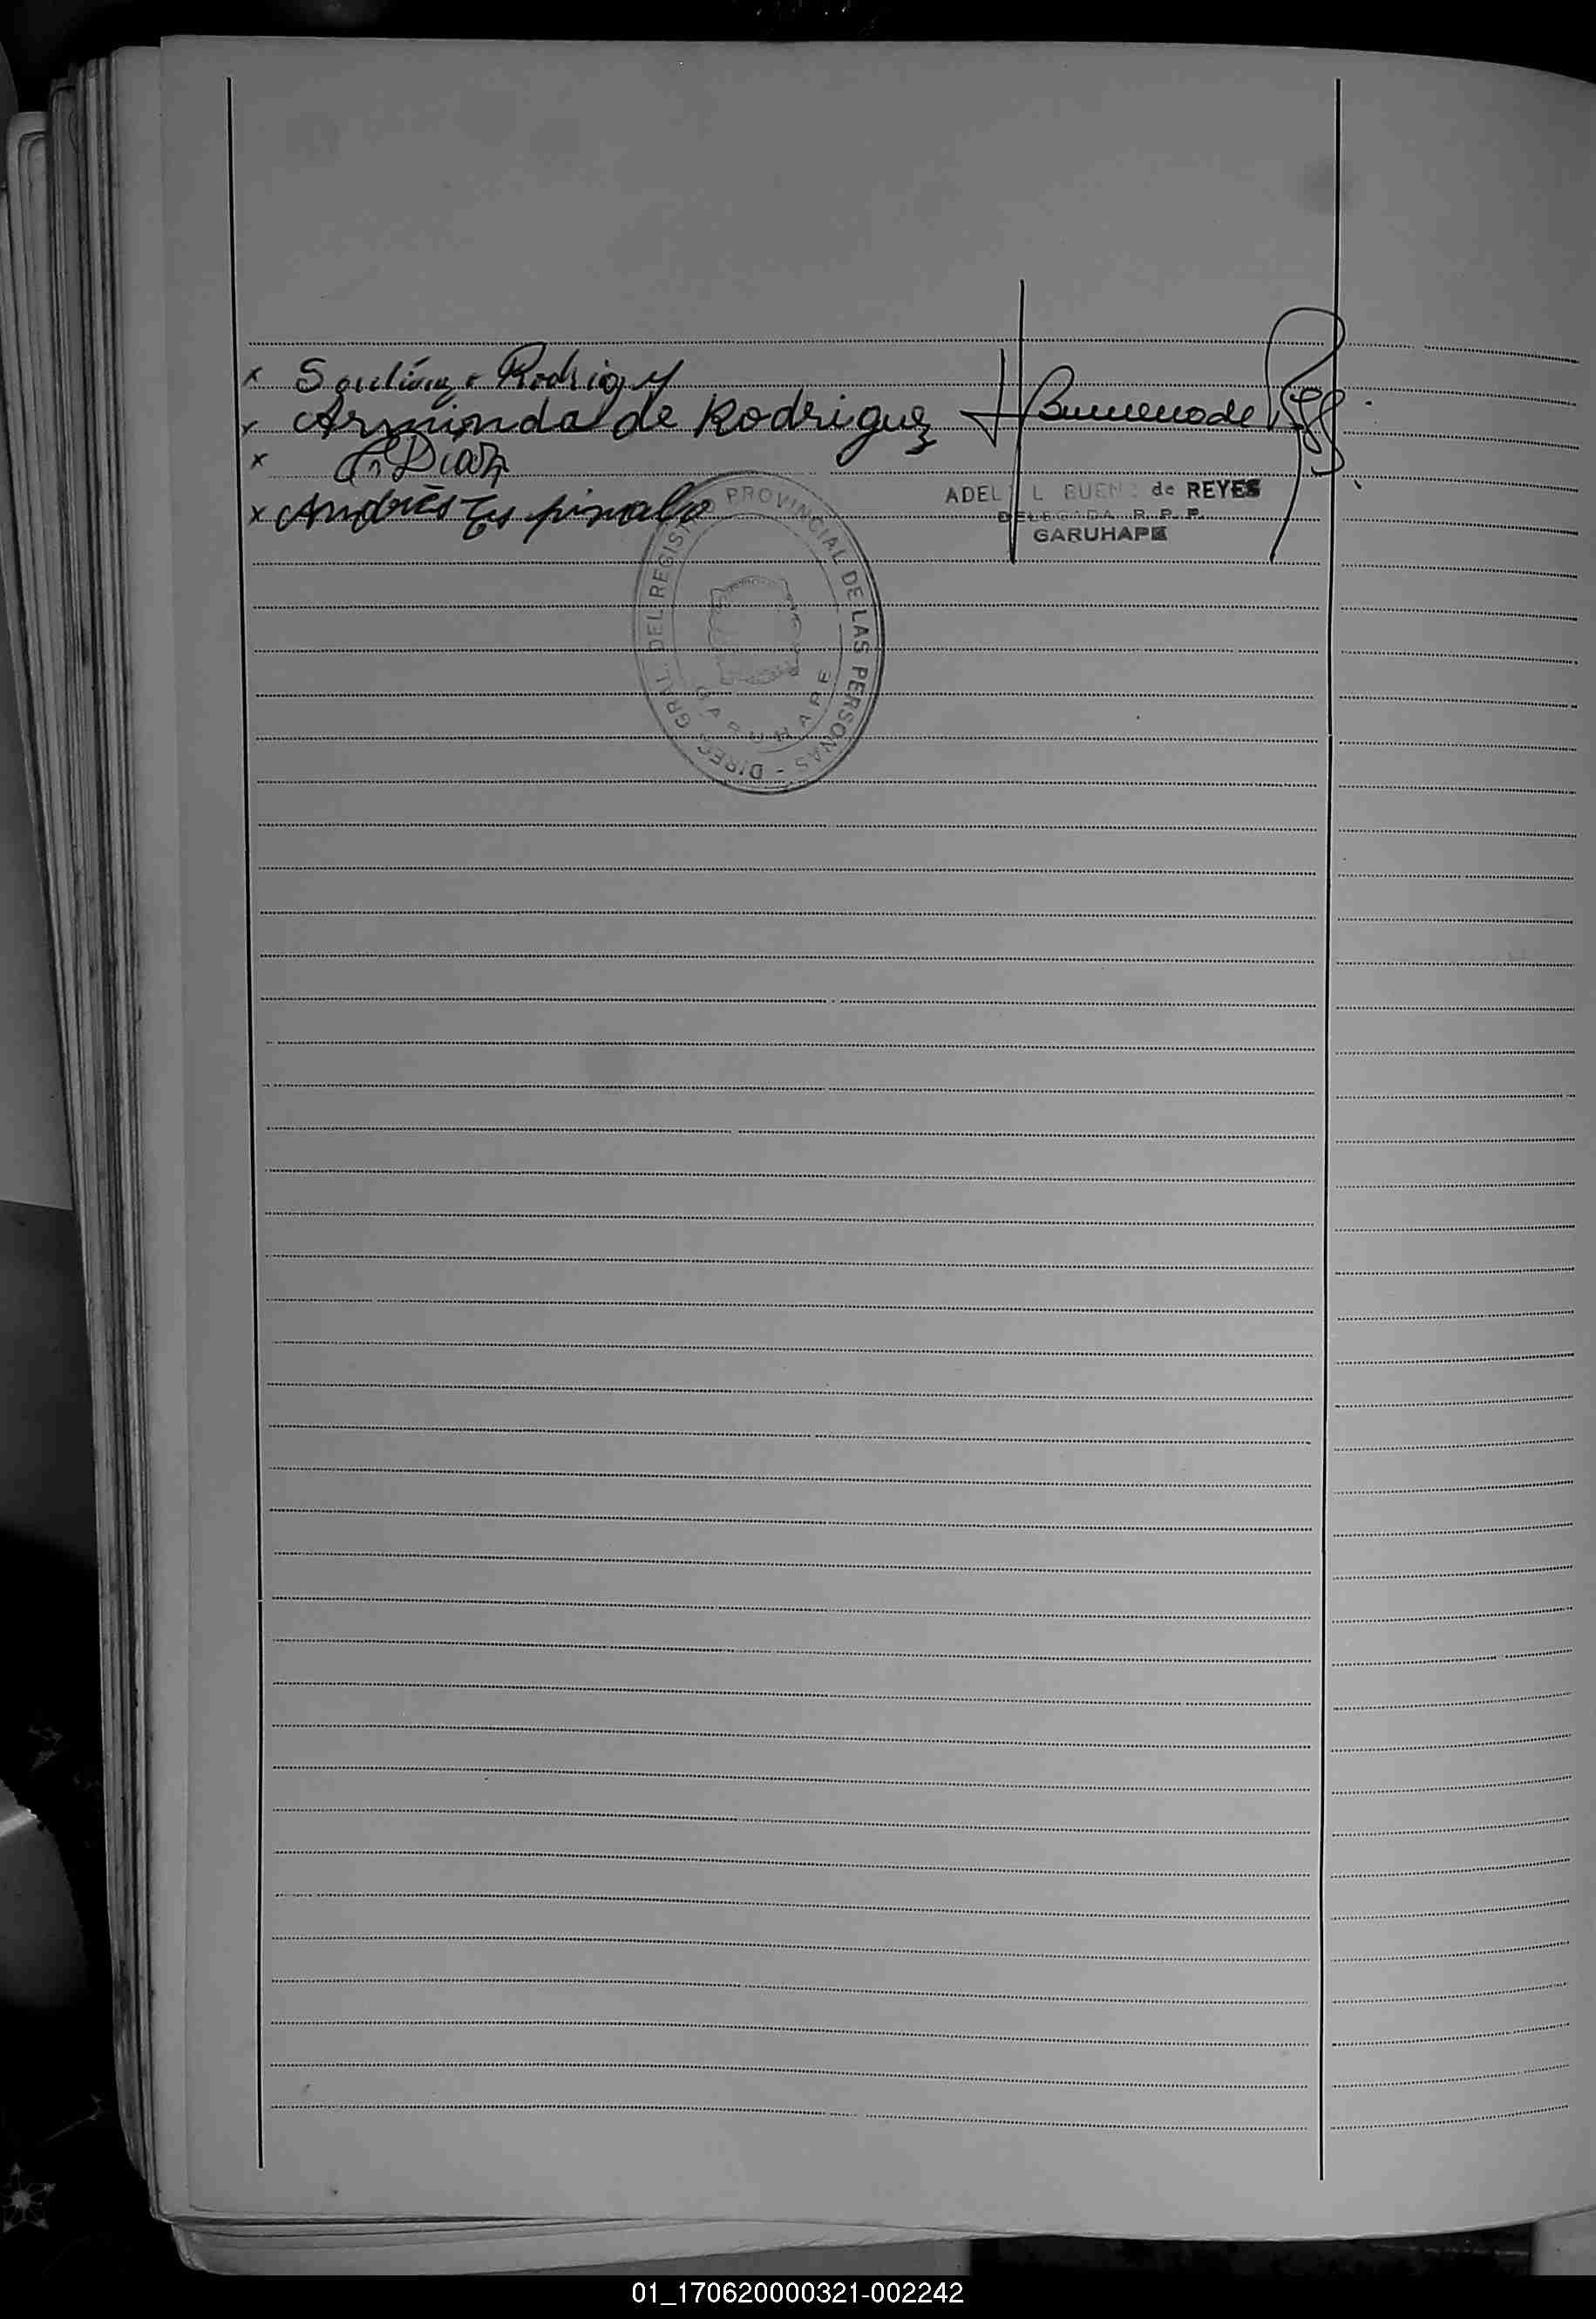 x Rodriguez
x Arminda de Rodriguez
x Diaz
x Andrés Espinola
Bueno de Reyes
ADEL L BUENO de REYES
DELEGADA R. P. P.
GARUHAPE
DIREC. GRAL. DEL REGISTRO PROVINCIAL DE LAS PERSONAS -
GARUHAPE
01_170620000321-002242